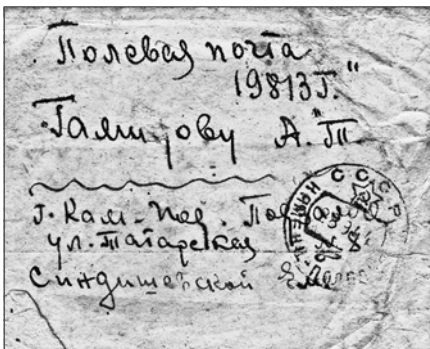 Полевая почта
19813 Т."
Галицову А. Т.
г. Кам-Под.
ул. Татарская
Синдишевской
СССР